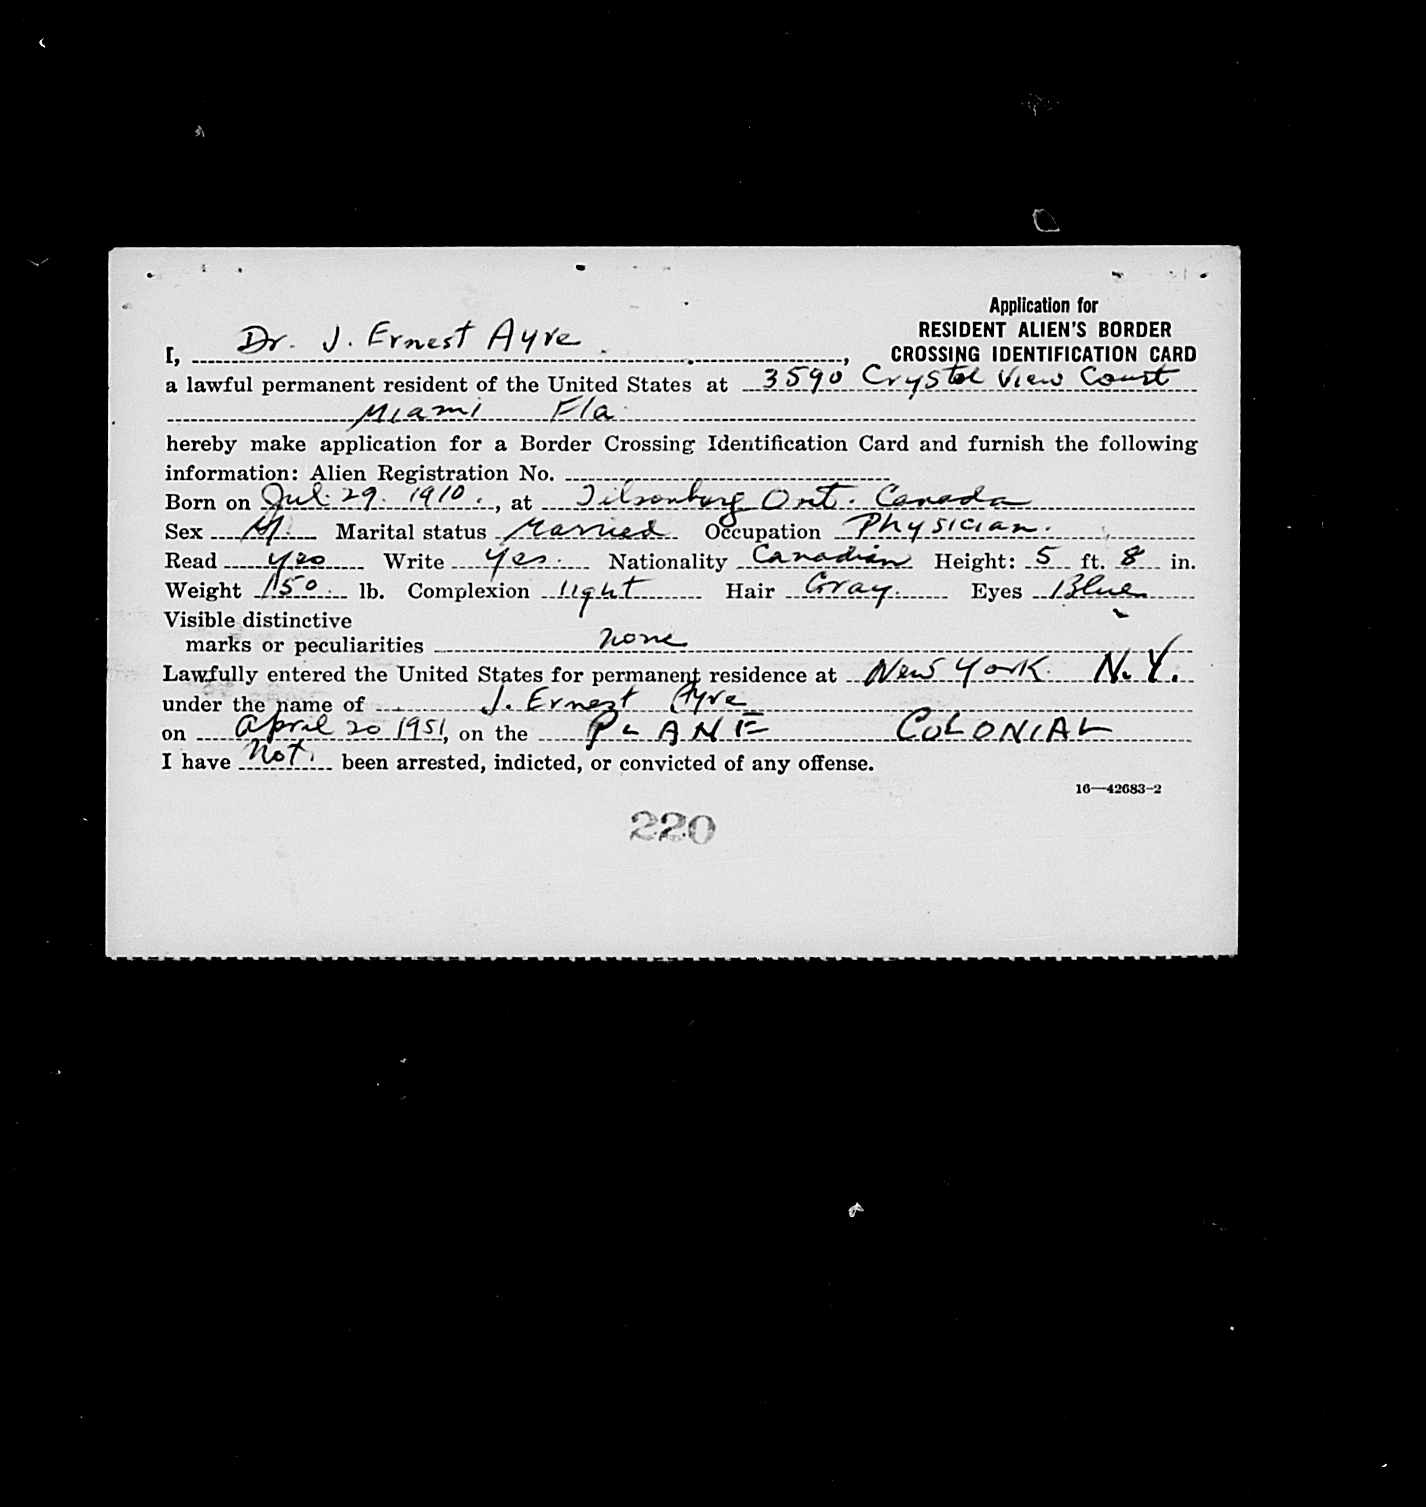 Application for
RESIDENT ALIEN'S BORDER
CROSSING IDENTIFICATION CARD
I, Dr. J. Ernest Ayre,
a lawful permanent resident of the United States at 3590 Crystal View Court
Miami Fla.
hereby make application for a Border Crossing Identification Card and furnish the following
information: Alien Registration No.
Born on Jul. 29. 1910., at Tilsonburg Ont. Canada
Sex M. Marital status Married Occupation Physician.
Read yes Write yes. Nationality Canadian Height: 5 ft. 8 in.
Weight 150. lb. Complexion light Hair Gray. Eyes Blue
Visible distinctive
marks or peculiarities none
Lawfully entered the United States for permanent residence at New York. N.Y.
under the name of J. Ernest Ayre
on April 20 1951, on the PLANE COLONIAL
I have not. been arrested, indicted, or convicted of any offense.
16—42683-2
220